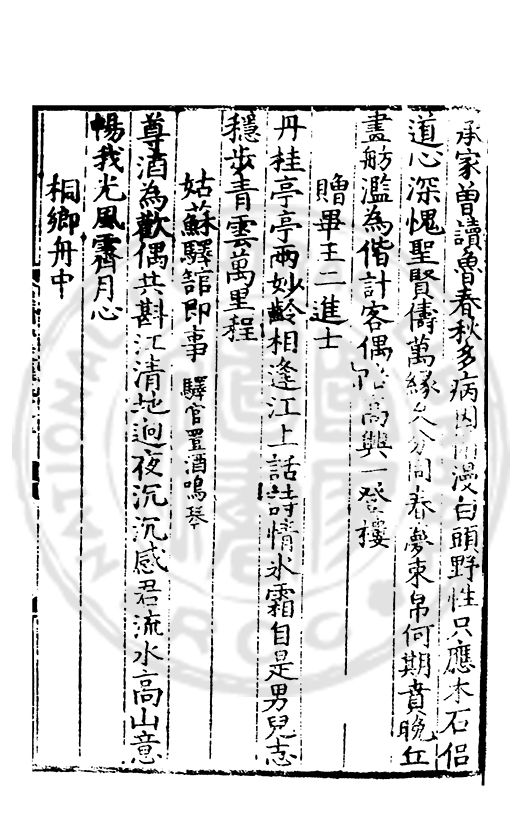 承家曾讀魯春秋多病因漫白頭野性只應木石侶
道心深愧聖賢儔萬緣久分同春夢束帛何期賁晩丘
畫舫濫為偕計客偶高興一登樓
贈畢王二進士
丹桂亭亭兩妙齡相逢江上話詩情氷霜自是男兒志
穩步青雲萬里程
姑蘇驛舘即事 驛官置酒鳴琴
尊酒為歡偶共斟江清地迥夜沉沉感君流水高山意
暢我光風霽月心
桐鄉舟中